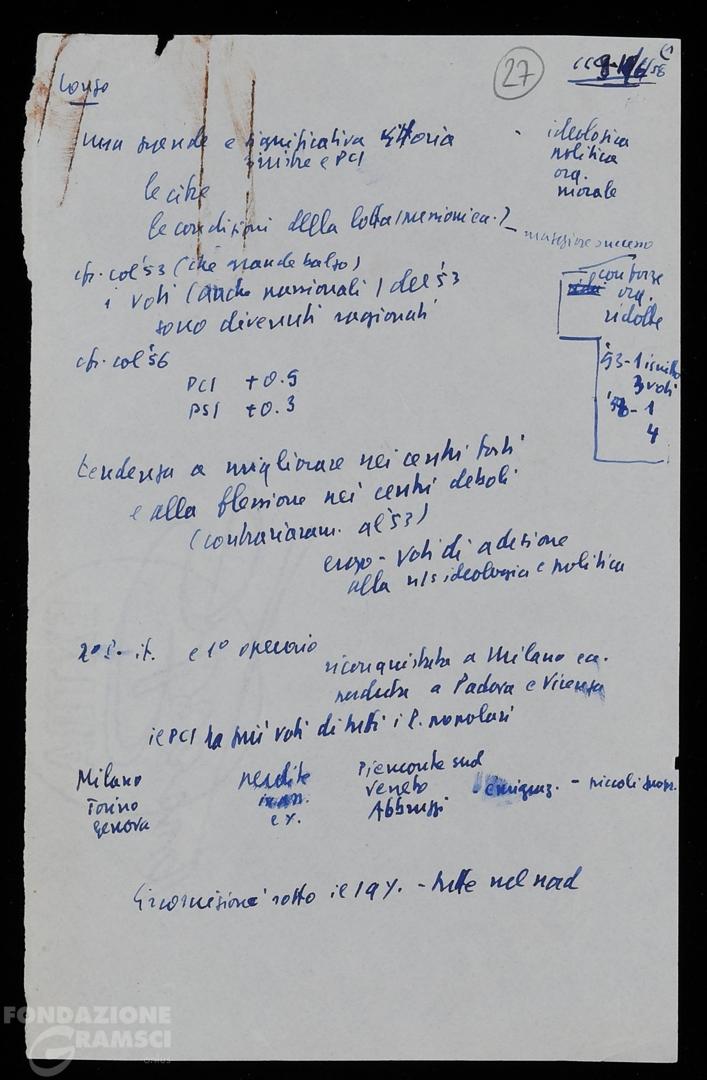 27
9-10/6/58
Longo
una grande e significativa vittoria
sinistre e PCI
- ideologica
politica
org.
morale
le cifre
le condizioni della lotta
- maggiore successo
cfr. col '53 (che grande balzo)
i voti (anche nazionali) del '53
sono divenuti ragionati
con forze
org.
ridotte
'53 - 1
3 voti
- 1
4
cfr. col '56
PCI +0.5
PSI +0.3
tendenza a migliorare nei centri forti
e alla flessione nei centri deboli
(contrariam. al '53)
ergo - voti di adesione
alla n/s ideologia e politica
2º P. it. e 1º operaio
riconquistata a Milano ca.
perduta a Padova e Vicenza
il PCI ha più voti di tutti i P. popolari
Milano
Torino
Genova
perdite
in %
Piemonte sud
Veneto
Abbruzzi
emigraz. - piccoli
Circoscrizioni sotto il 19% - tutte nel nord
FONDAZIONE
GRAMSCI
ONLUS